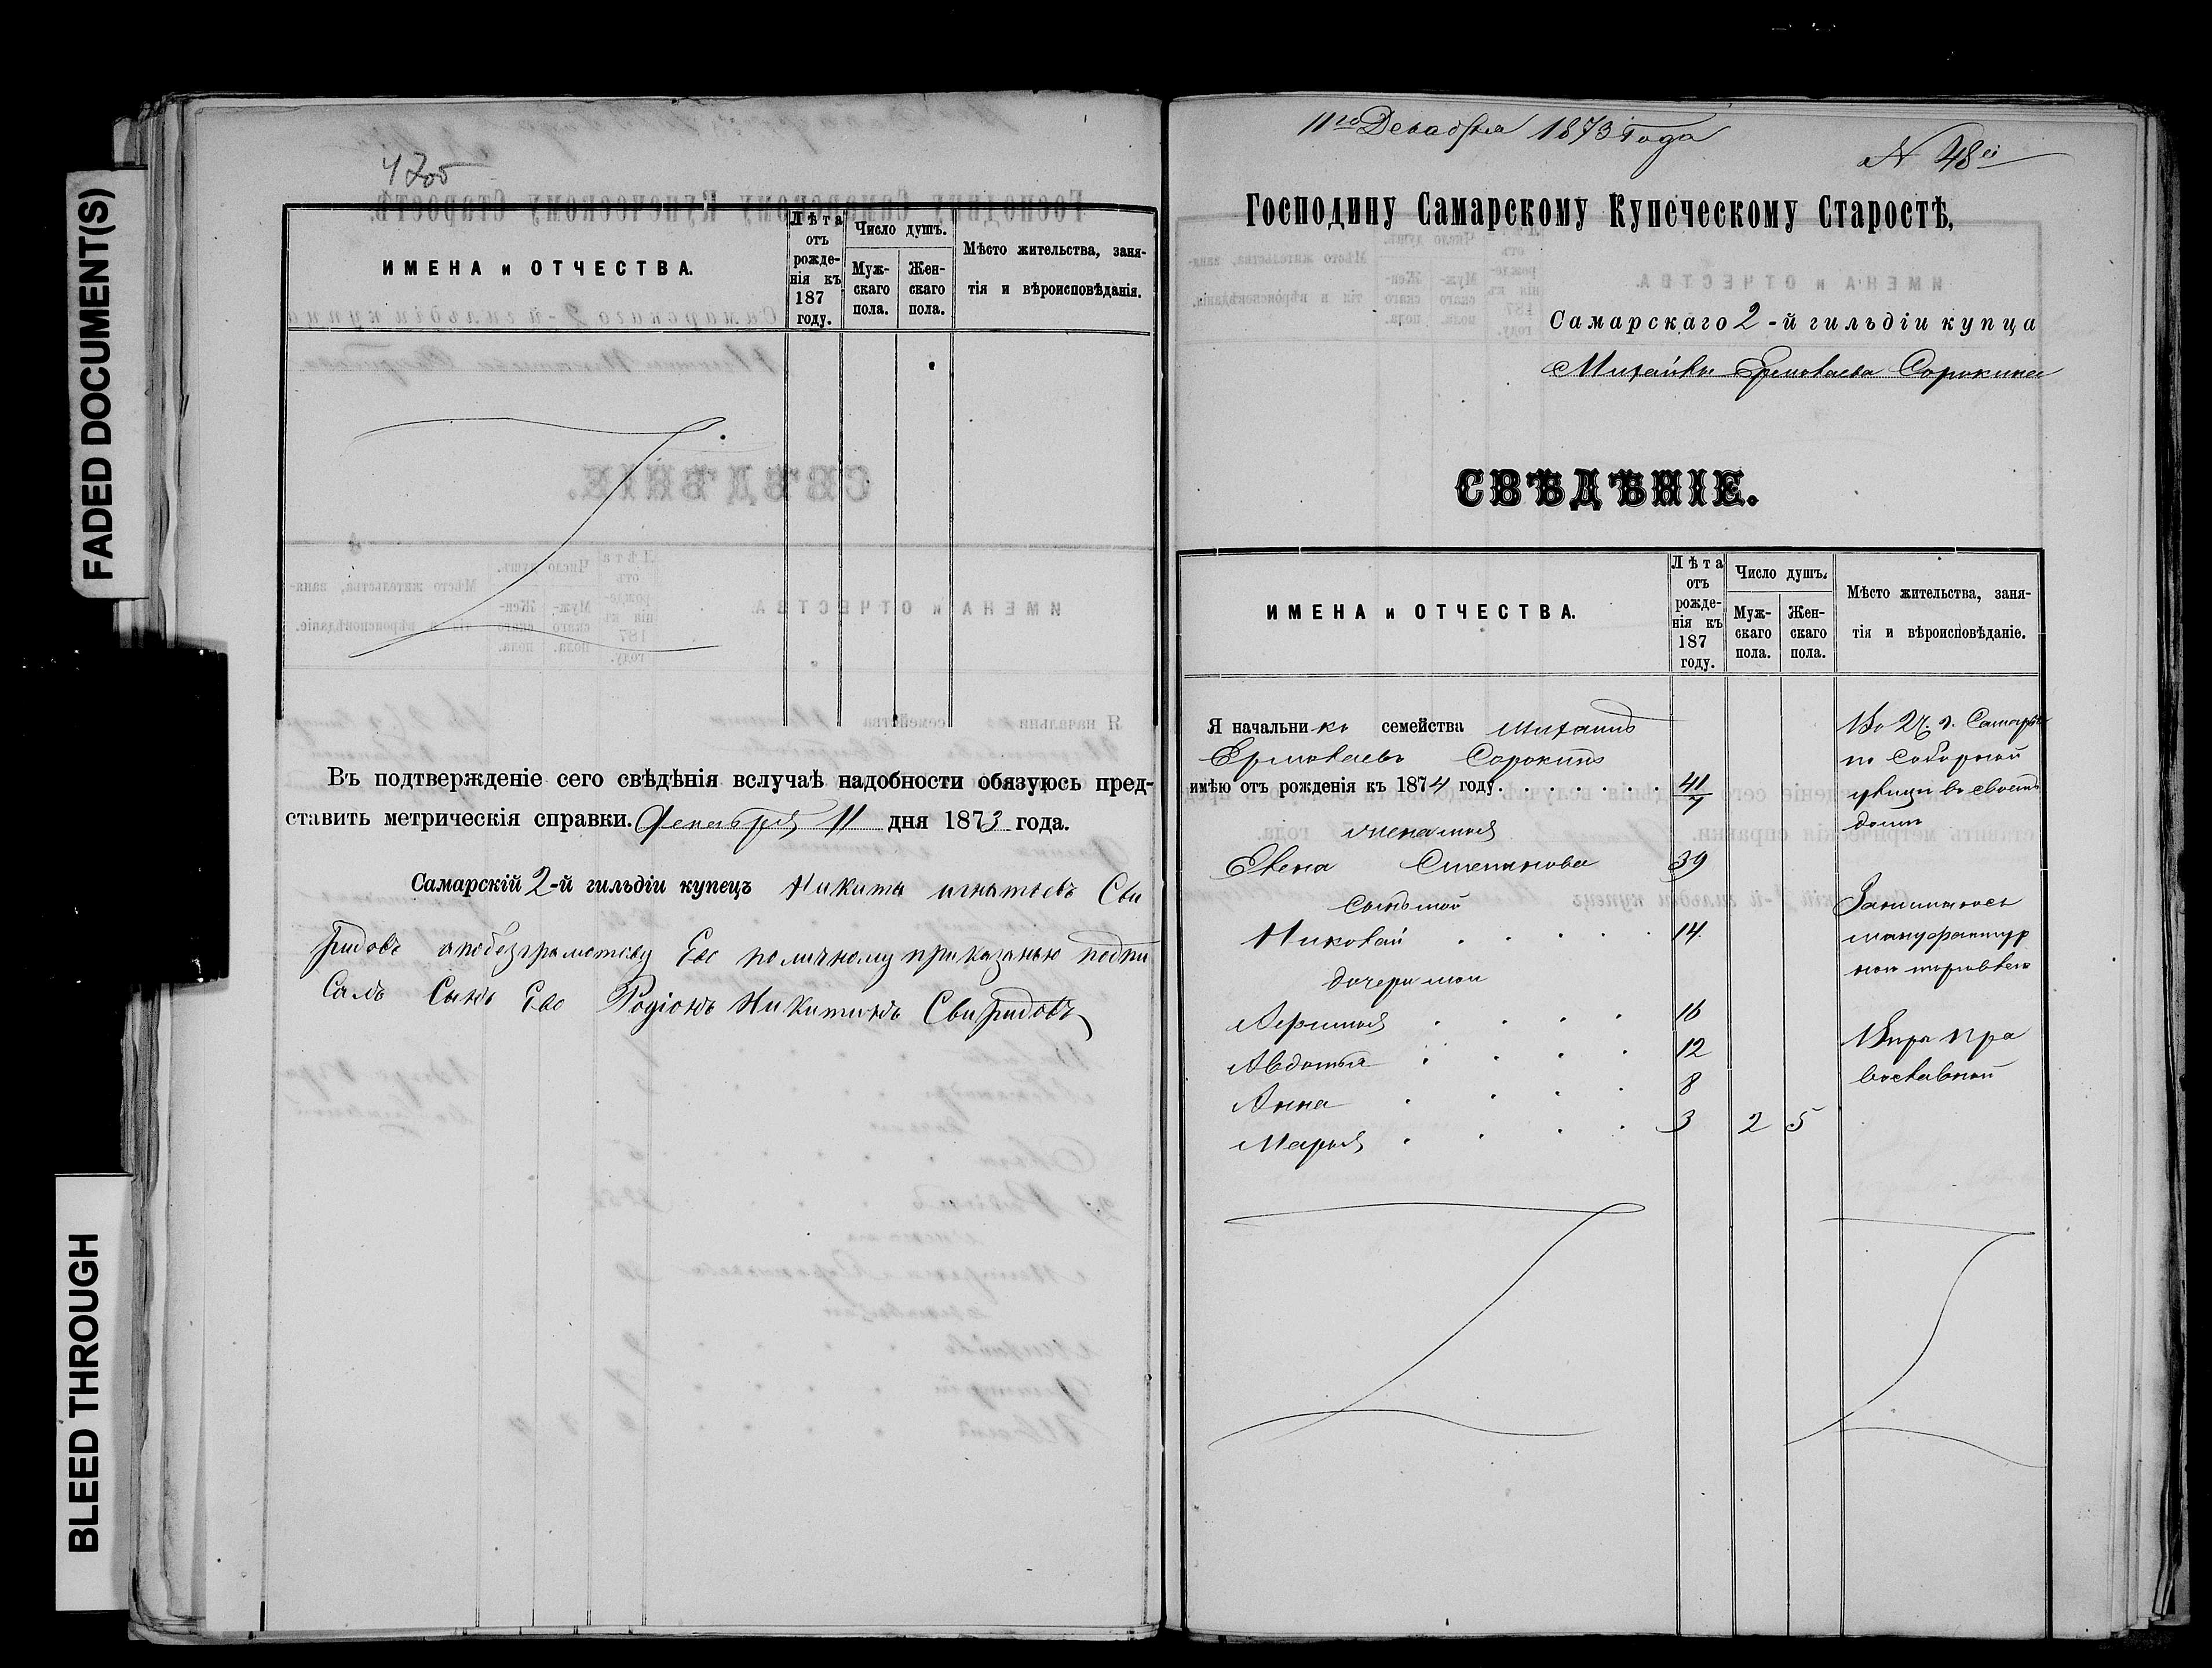 FADED DOCUMENT(S)
BLEED THROUGH
ИМЕНА и ОТЧЕСТВА.
Лѣта отъ рожденія къ 187 году.
Число душъ.
Мужскаго пола.
Женскаго пола.
Мѣсто жительства, заня-
тія и вѣроисповѣданія.
Въ подтвержденіе сего свѣдѣнія вслучаѣ надобности обязуюсь пред-
ставить метрическія справки. Декабря 11 дня 1873 года.
Самарскій 2-й гильдіи купецъ Никита игнатьевъ Сви
ридовъ апобезграмотству Его поличному приказанью подпи
Салъ Сынъ Его Родіонъ Никитинъ Свиридовъ
11го Декабря 1873 Года
N 48й
Господину Самарскому Купеческому Старостѣ,
Самарскаго 2-й гильдіи купца
Михайлы Ермолаева Сорокина
СВѢДѢНІЕ.
ИМЕНА и ОТЧЕСТВА.
Лѣта отъ рожденія къ 187 году.
Число душъ.
Мужскаго пола.
Женскаго пола.
Мѣсто жительства, заня-
тія и вѣроисповѣданіе.
Я начальникъ семейства Михаилъ
Ермолаевъ Сорокинъ
имѣю отъ рожденія къ 1874 году. . . . . . . 41
жена моя
Елена Степанова 39
сынъ мой
Николай . . . . . 14
дочери мои
. . . . 16
Авдотья . . . . 12
Анна . . . . 8
Марья . . . . 3 2 5
Во 2й ч. г. Самары
по Соборной
улице в своемъ
доме
Занимаюсь
мануфактур
ной торговлею
Веры пра
вославной